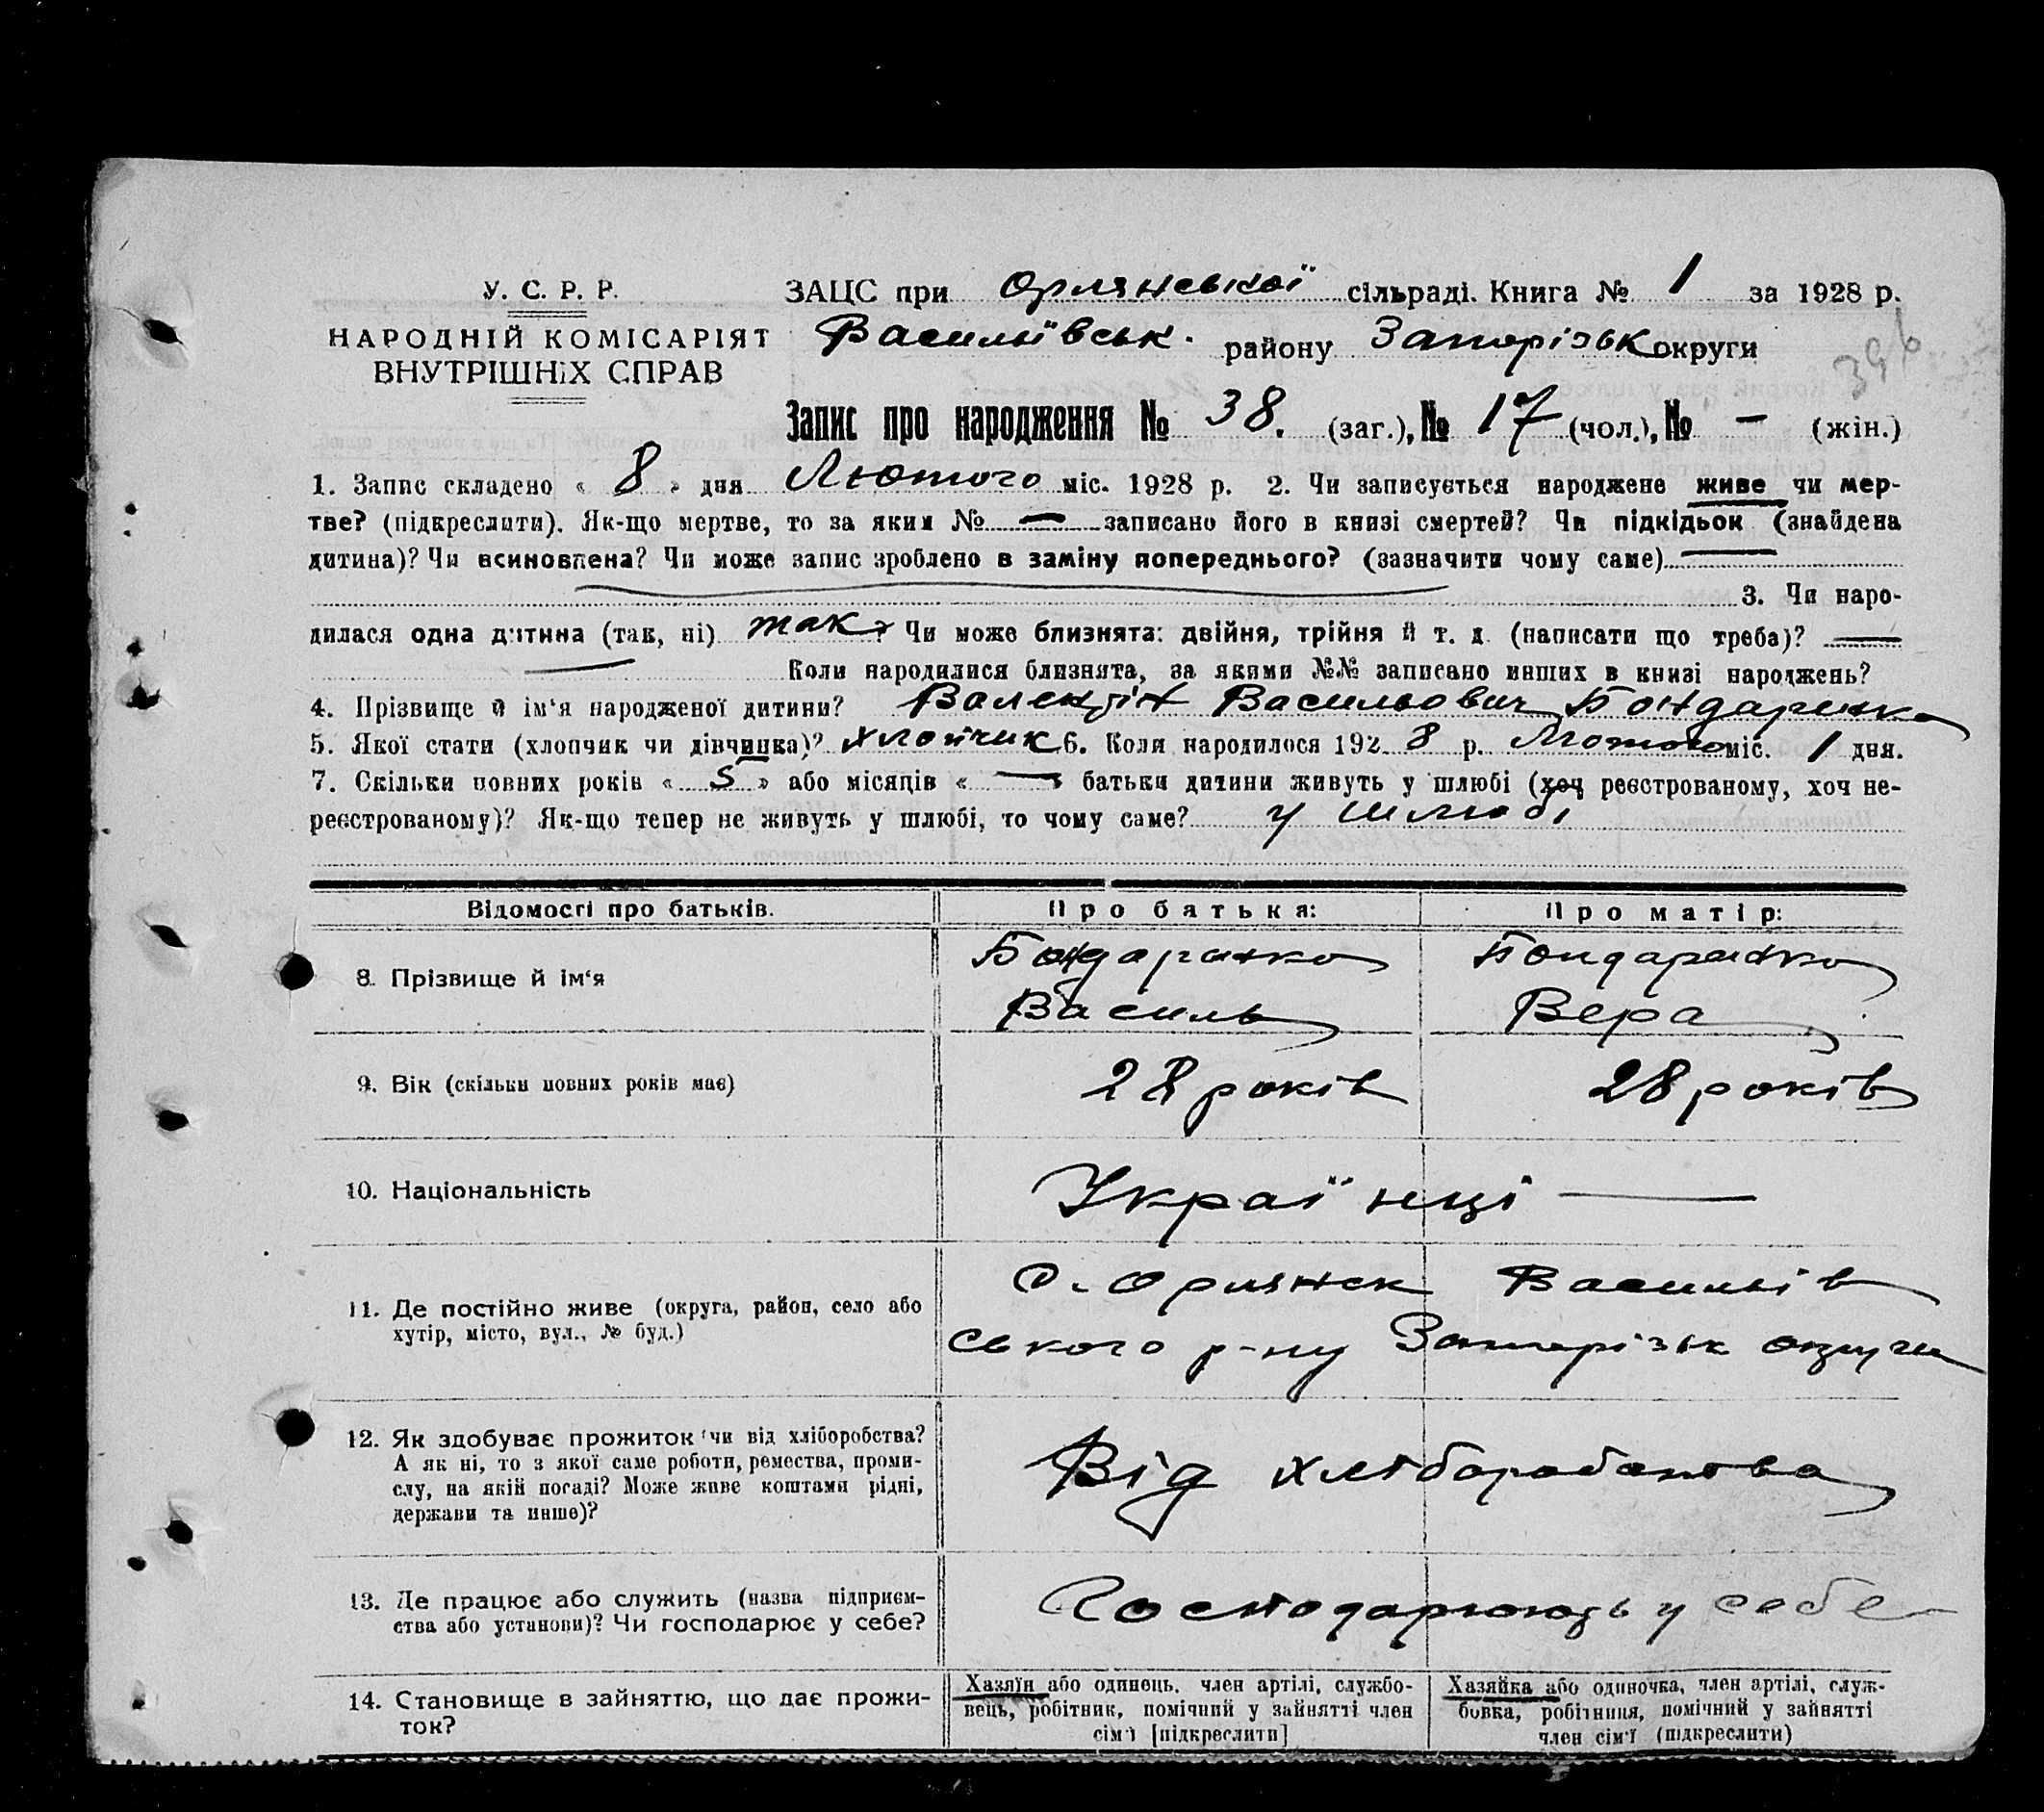 У. С. Р. Р.
НАРОДНІЙ КОМІСАРІЯТ
ВНУТРІШНІХ СПРАВ
ЗАЦС при Орлянської сільраді. Книга № 1 за 1928 р.
Василівськ. району Запорізьк округи
396
Запис про народження № 38. (заг.), № 17 (чол.), № – (жін.)
1. Запис складено « 8 » дня Лютого міс. 1928 р. 2. Чи записується народжене живе чи мер-
тве? (підкреслити). Як-що мертве, то за яким № — записано його в книзі смертей? Чи підкідьок (знайдена
дитина)? Чи всиновлена? Чи може запис зроблено в заміну попереднього? (зазначити чому саме) —
3. Чи наро-
дилася одна дитина (так, ні) так? Чи може близнята: двійня, трійня й т. д. (написати що треба)? —
— Коли народилися близнята, за якими №№ записано инших в книзі народжень?
4. Прізвище й ім'я народженої дитини? Валентін Васильович Бондаренко
5. Якої стати (хлопчик чи дівчинка)? хлопчик 6. Коли народилося 192 8 р. Лютого міс. 1 дня.
7. Скільки повних років « 5 » або місяців « — » батьки дитини живуть у шлюбі (хоч реєстрованому, хоч не-
реєстрованому)? Як-що тепер не живуть у шлюбі, то чому саме? у шлюбі
Відомості про батьків. Про батька: Про матір:
8. Прізвище й ім'я Бондаренко Василь Бондаренко Вера
9. Вік (скільки повних років має) 28 років 28 років
10. Національність Українці —
11. Де постійно живе (округа, район, село або
хутір, місто, вул., № буд.)
с. Орлянськ Василів
ського р-ну Запорізьк округи
12. Як здобуває прожиток чи від хліборобства?
А як ні, то з якої саме роботи, ремества, проми-
слу, на якій посаді? Може живе коштами рідні,
держави та инше)?
Від хліборобства
13. Де працює або служить (назва підприєм-
ства або установи)? Чи господарює у себе?
Господарюють у себе
14. Становище в зайняттю, що дає прожи-
ток?
Хазяїн або одинець, член артілі, службо-
вець, робітник, помічний у зайнятті член
сім'ї [підкреслити]
Хазяйка або одиночка, член артілі, служ-
бовка, робітниця, помічний у зайнятті
член сім'ї (підкреслити)